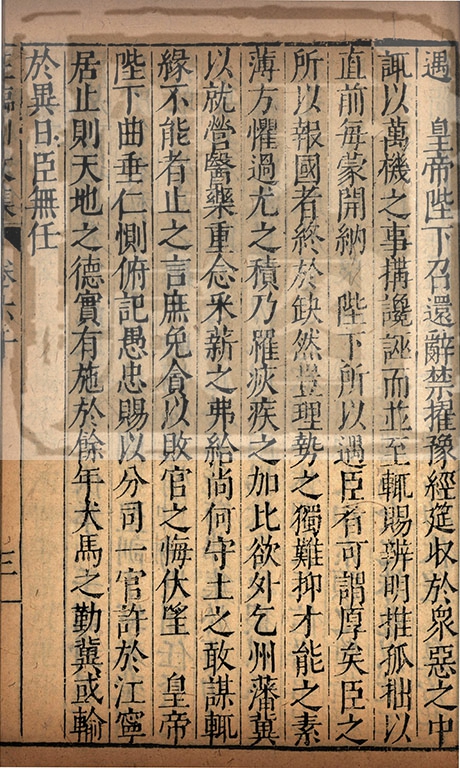 遇　皇帝陛下召還辭禁擢豫經筵收於衆惡之中
諏以萬機之事搆讒誣而並至輒賜辨明推孤拙以
直前每蒙開納　陛下所以遇臣者可謂厚矣臣之
所以報國者終於缺然豈理勢之獨難抑才能之素
薄方懼過尤之積乃罹疢疾之加比欲外乞州藩冀
以就營醫藥重念采薪之弗給尚何守土之敢謀輒
緣不能者止之言庶免貪以敗官之悔伏望　皇帝
陛下曲垂仁惻俯記愚忠賜以分司一官許於江寧
居止則天地之德實有施於餘年犬馬之勤冀或輸
於異日臣無任
王臨川文集　卷六十　三